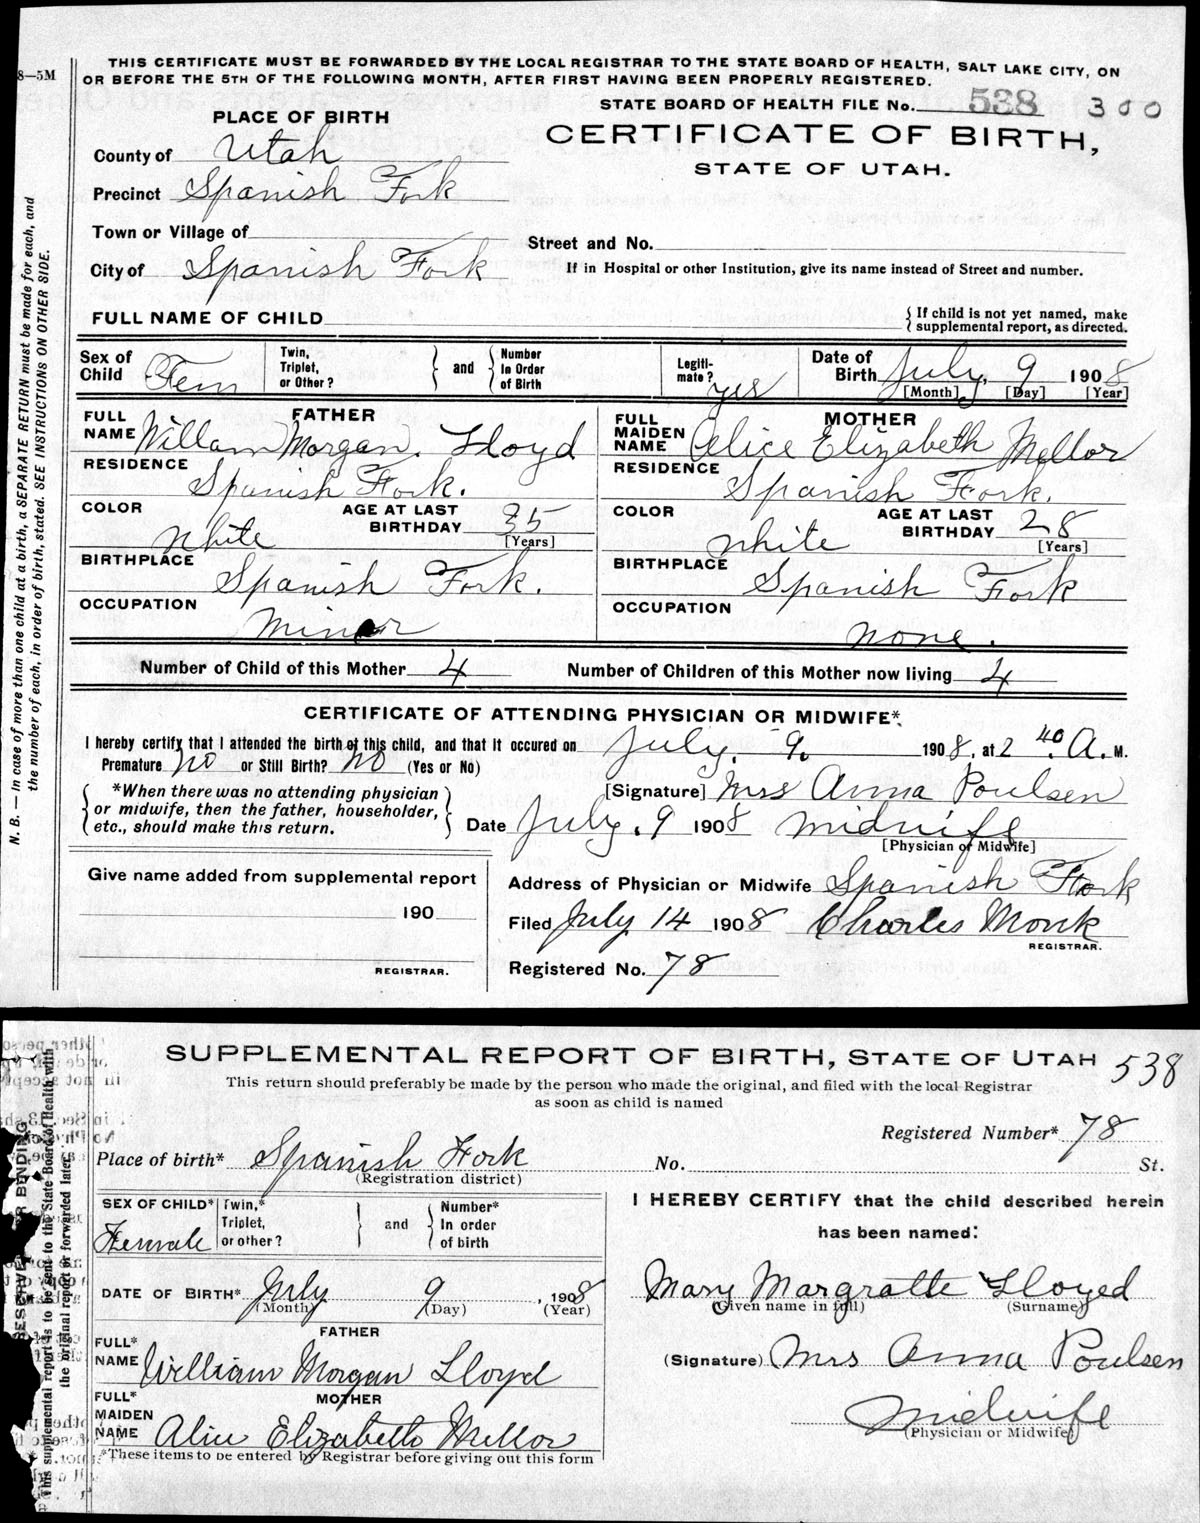 8—5M
THIS CERTIFICATE MUST BE FORWARDED BY THE LOCAL REGISTRAR TO THE STATE BOARD OF HEALTH, SALT LAKE CITY, ON
OR BEFORE THE 5TH OF THE FOLLOWING MONTH, AFTER FIRST HAVING BEEN PROPERLY REGISTERED.
STATE BOARD OF HEALTH FILE No. 538 300
PLACE OF BIRTH
CERTIFICATE OF BIRTH,
STATE OF UTAH.
County of Utah
Precinct Spanish Fork
Town or Village of
Street and No.
City of Spanish Fork
If in Hospital or other Institution, give its name instead of Street and number.
FULL NAME OF CHILD
{If child is not yet named, make
supplemental report, as directed.
Sex of Child Fem
Twin, Triplet, or Other? } and { Number In Order of Birth
Legiti- mate? yes
Date of Birth July, 9 1908
[Month] [Day] [Year]
FATHER
FULL NAME Willam Morgan. Lloyd
RESIDENCE Spanish Fork.
COLOR White
AGE AT LAST BIRTHDAY 35
[Years]
BIRTHPLACE Spanish Fork.
OCCUPATION Miner
MOTHER
FULL MAIDEN NAME Alice Elizabeth Mellor
RESIDENCE Spanish Fork.
COLOR White
AGE AT LAST BIRTHDAY 28
[Years]
BIRTHPLACE Spanish Fork
OCCUPATION none.
Number of Child of this Mother 4
Number of Children of this Mother now living 4
CERTIFICATE OF ATTENDING PHYSICIAN OR MIDWIFE*.
I hereby certify that I attended the birth of this child, and that it occured on July. 9. 1908, at 2 40 A. M.
Premature no or Still Birth? no (Yes or No)
*When there was no attending physician
or midwife, then the father, householder,
etc., should make this return.
[Signature] Mrs Anna Poulsen
Date July. 9 1908 Midwife
[Physician or Midwife]
Give name added from supplemental report
190
REGISTRAR.
Address of Physician or Midwife Spanish Fork
Filed July 14 1908 Charles Monk
REGISTRAR.
Registered No. 78
N. B.—In case of more than one child at a birth, a SEPARATE RETURN must be made for each, and
the number of each, in order of birth, stated. SEE INSTRUCTIONS ON OTHER SIDE.
SUPPLEMENTAL REPORT OF BIRTH, STATE OF UTAH 538
This return should preferably be made by the person who made the original, and filed with the local Registrar
as soon as child is named
Registered Number* 78
Place of birth* Spanish Fork No. St.
(Registration district)
SEX OF CHILD* Female
Twin,* Triplet, or other? } and { Number* In order of birth
DATE OF BIRTH* July 9, 1908
(Month) (Day) (Year)
FATHER
FULL* NAME William Morgan Lloyd
MOTHER
FULL* MAIDEN NAME Alice Elizabeth Mellor
*These items to be entered by Registrar before giving out this form
I HEREBY CERTIFY that the child described herein
has been named:
Mary Margratte Lloyed
(Given name in full) (Surname)
(Signature) Mrs Anna Poulsen
Midwife
(Physician or Midwife)
This supplemental report is to be sent to the State Board of Health with
the original report or forwarded later.